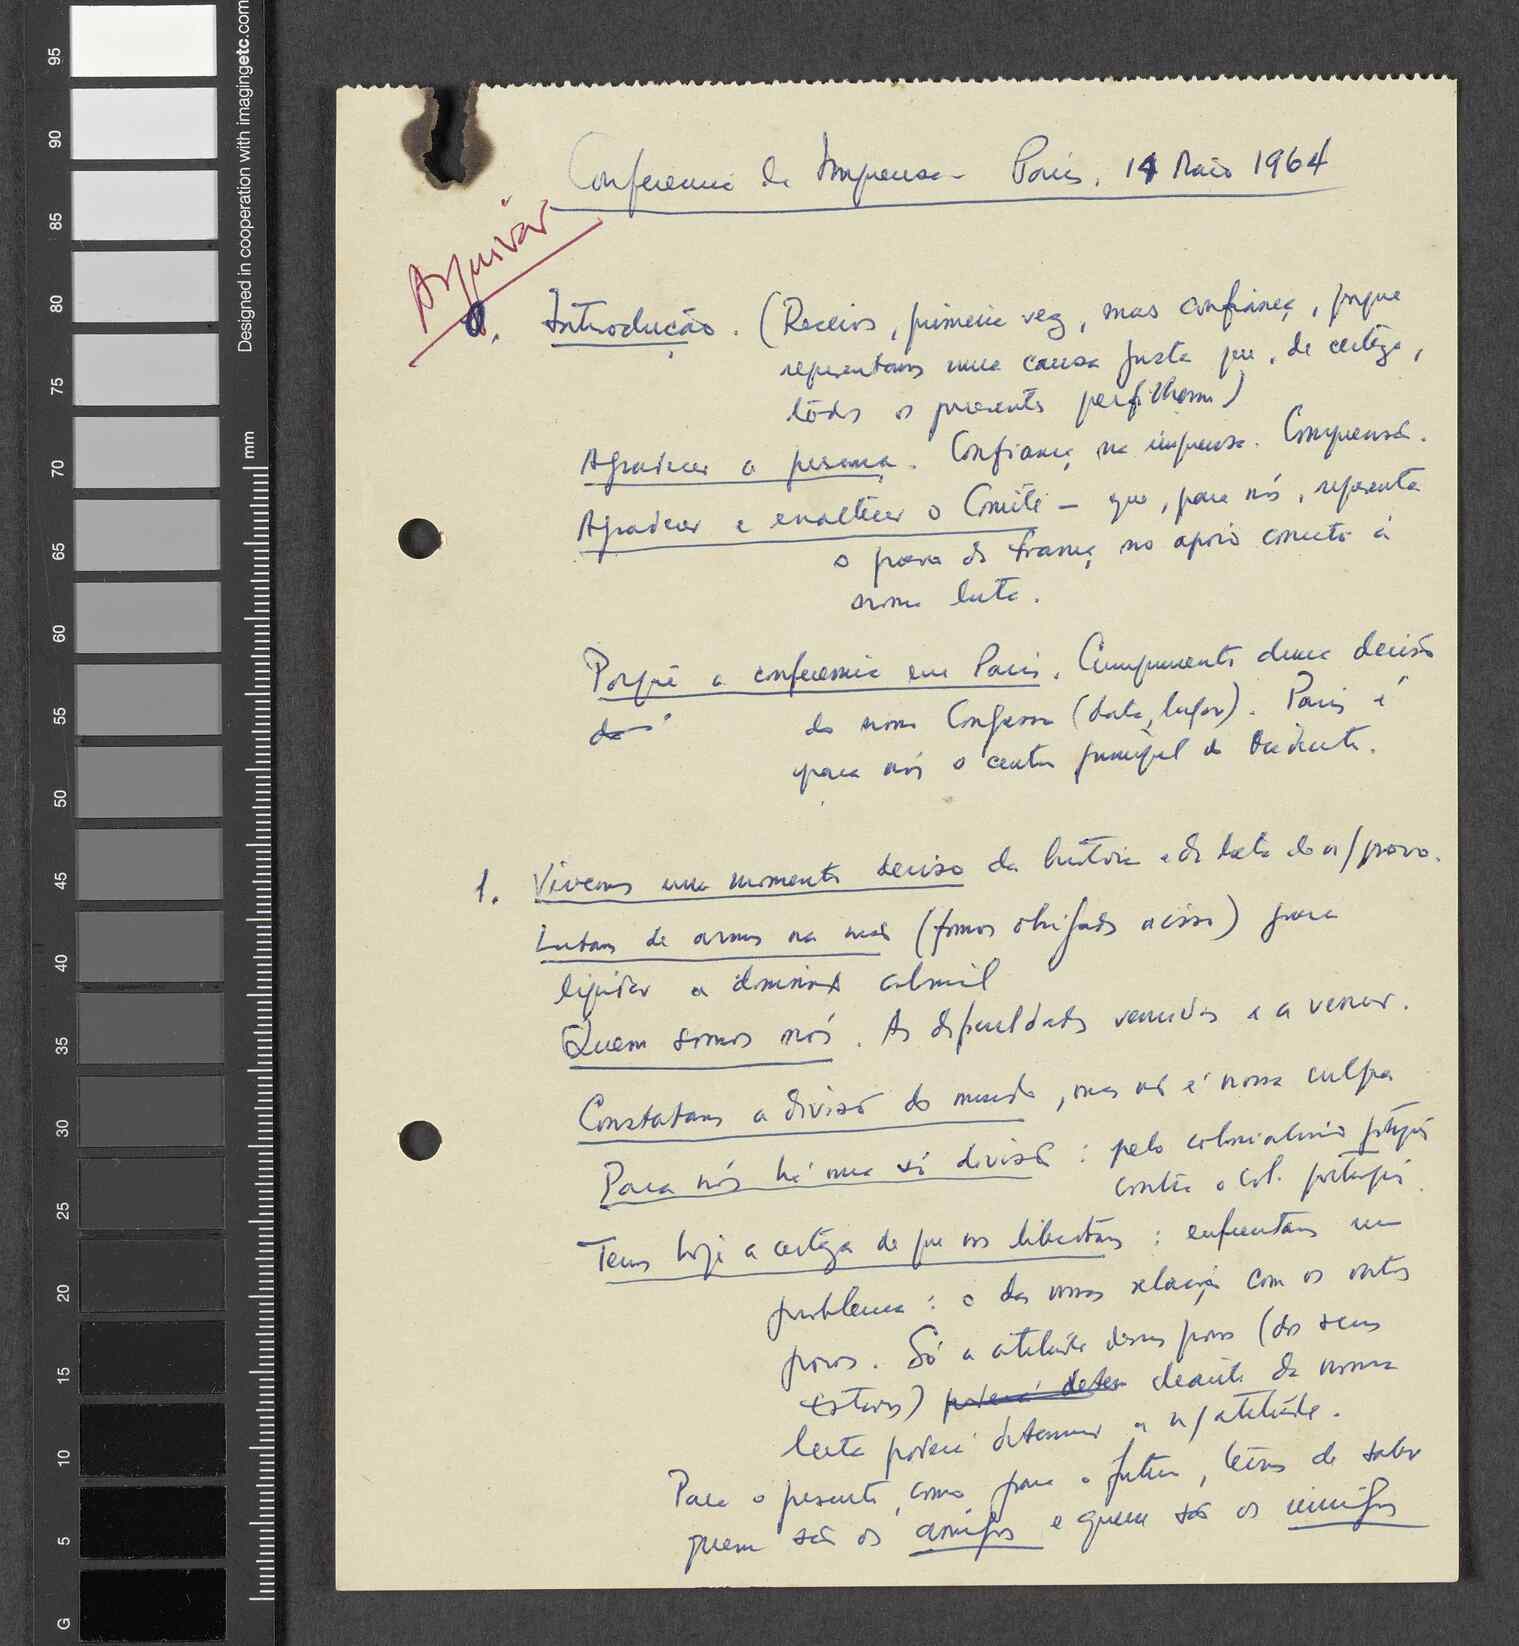 Conferencia de Imprensa - Paris, 14 Maio 1964
Arquivar
0. Introdução. (Receios, primeira vez, mas confiança, porque
representamos uma causa justa que, de certeza,
todos os presentes perfilham)
Agradecer a presença. Confiança na imprensa. Compreensão.
Agradecer e enaltecer o Comité - que, para nós, representa
o povo da França, no apoio concreto à
nossa luta.
Porquê a conferencia em Paris. Cumprimento duma decisão
do nosso Congresso (data, lugar). Paris é
para nós o centro principal do Ocidente.
1. Vivemos um momento deciso da história e da luta do n/povo.
Lutamos de armas na mão (fomos obrigados a isso) para
liquidar a dominação colonial
Quem somos nós. As dificuldades vencidas e a vencer.
Constatamos a divisão do mundo, mas não é nossa culpa
Para nós há uma só divisão: pelo colonialismo português
contra o col. português.
Temos hoje a certeza de que nos libertamos: enfrentamos um
problema: o das nossas relações com os outros
povos. Só a atitude desses povos (dos seus
Estados) poderá deter deante da nossa
luta poderá determinar a n/atitude.
Para o presente, como para o futuro, temos de saber
quem são os amigos e quem são os inimigos
95
90
85
80
75
70
65
60
55
50
45
40
35
30
25
20
15
10
5
G
mm
Designed in cooperation with imagingetc.com